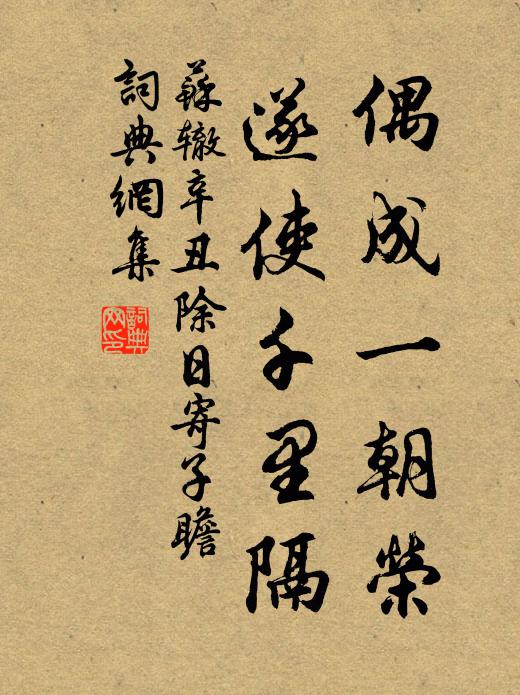 偶成一朝榮
遂使千里隔
蘇轍辛丑除日寄子瞻
詞典網集
詞典網印